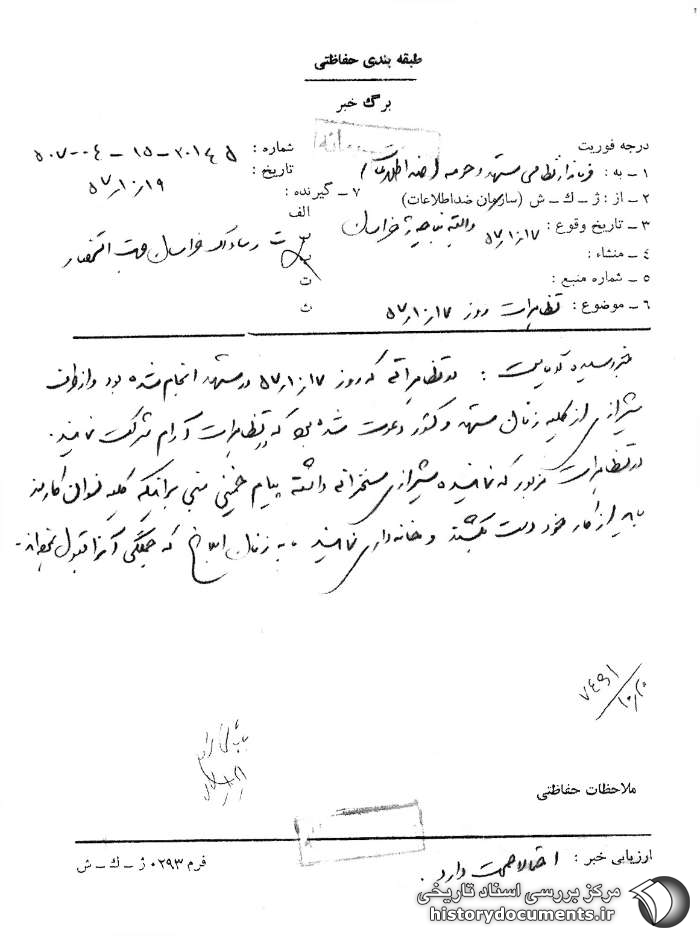 طبقه بندی حفاظتی
برگ خبر
درجه فوریت
شماره : ۵۰۷-۰۴-۱۵-۳۰۱۴۵
۱ - به : فرماندار نظامی مشهد و حومه
تاریخ : ۵۷/۱۰/۱۹
۲ - از : ژ - ک - ش (سازمان ضد اطلاعات)
۷ - گیرنده :
الف
۳ - تاریخ وقوع : ۵۷/۱۰/۱۷
ناحیه ژ خراسان
ب ریاست ساواک خراسان جهت استحضار
۴ - منشاء :
۵ - شماره منبع :
ت
۶ - موضوع : تظاهرات روز ۵۷/۱۰/۱۷
ث
خبر رسیده حاکیست : در تظاهراتی که روز ۵۷/۱۰/۱۷ در مشهد انجام شده بود و از طرف
شیرازی از کلیه زنان مشهد و کشور دعوت شده بود که در تظاهرات آرام شرکت نمایند .
در تظاهرات مزبور که نماینده شیرازی سخنرانی داشته پیام خمینی مبنی بر اینکه کلیه نسوان کارمند
باید از کار خود دست بکشند و خانه داری نمایند به زنان ابلاغ که همگی آنرا قبول نموده‌اند .
۷۴۹۱
۱۰/۲۰
ملاحظات حفاظتی
ارزیابی خبر : احتمال صحت دارد .
فرم ۰۲۹۳ ژ - ک - ش
مرکز بررسی اسناد تاریخی
historydocuments.ir